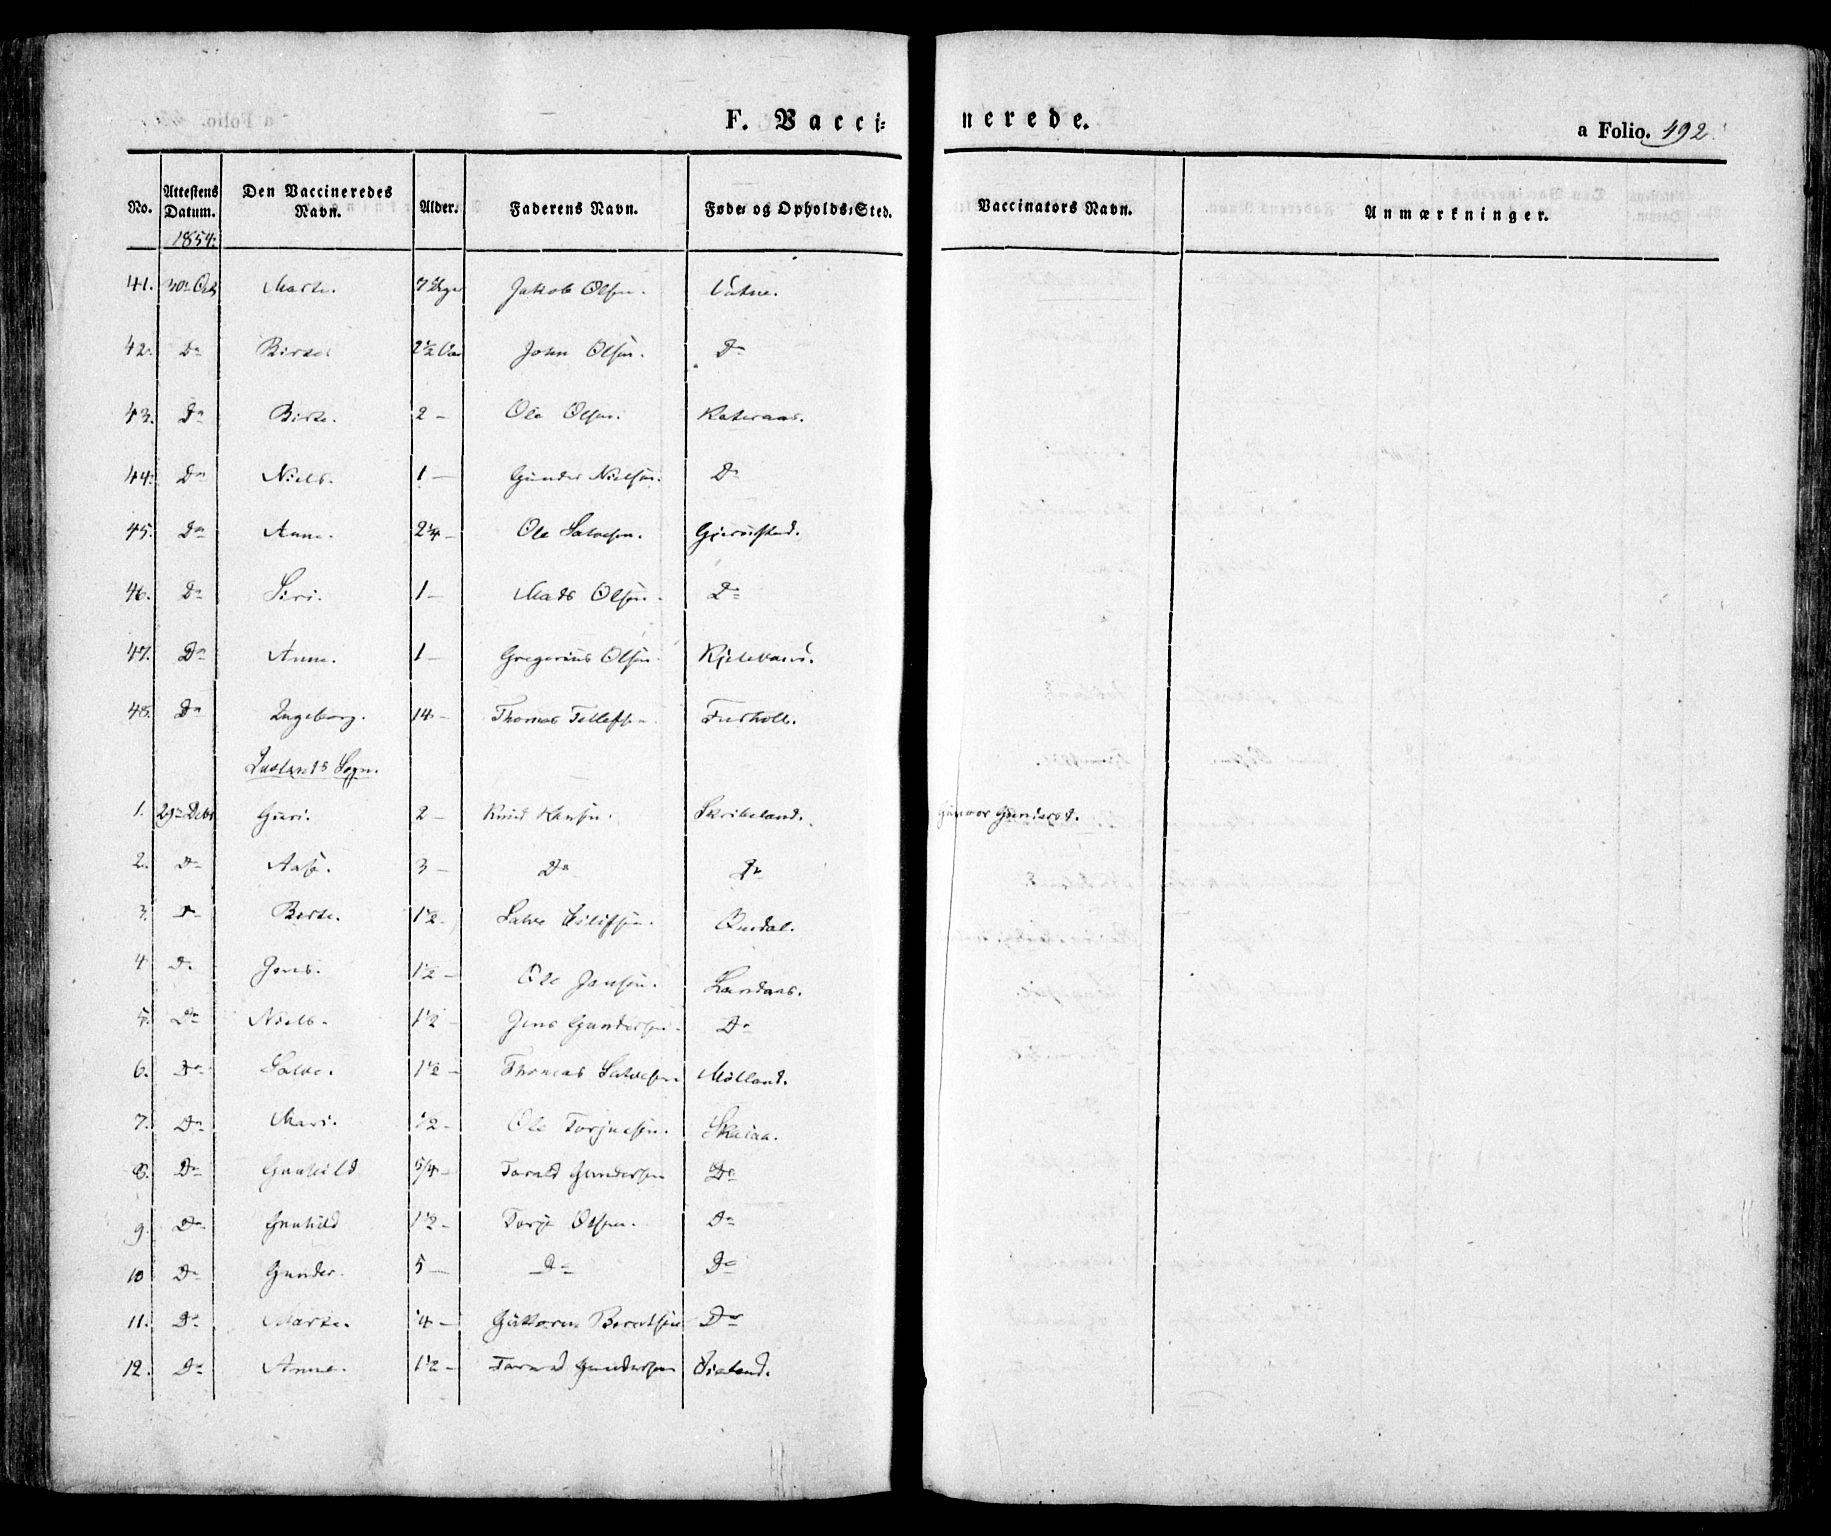 F. Vaccinerede.
a Folio. 492.
No. Attestens Datum. Den Vaccineredes Navn. Alder. Faderens Navn. Føde- og Opholds-Sted. Vaccinators Navn. Anmærkninger.
1854.
41. 30te Oct Marte. Jakob Olsen. Vatne.
42. Do 2 1/2 John Olsen. Do
43. Do Birte. 2 — Ole Olsen. Kateraas.
44. Do Niels. 1 — Gunder Nielsen. Do
45. Do Anne. 2 1/4 — Ole Salvesen. Gjerustad.
46. Do Siri. 1 — Mads Olsen. Do
47. Do Anne. 1 — Gregerius Olsen.
48. Do Ingeborg. 14 — Thomas Tellefsen.
Sogn.
1. 29de Decbr Guri. 2 — Knud Skribeland. Gunvor
2. Do Aase. 3 — Do Do
3. Do Berte. 1 1/2 — Salve Eilifsen.
4 Do Jens. 1 1/2 — Ole Jensen. Landaas.
5. Do Niels. 1 1/2 — Jens Gundersen. Do
6. Do Salve. 1 1/2 — Thomas Salvesen Mölland.
7. Do Mari. 1/2 — Ole Torjusen. Skeiaa.
8. Do Gunhild 5/4 — Torald Gundersen Do
9. Do Gunhild 1 1/2 — Torje Olsen. Do
10 Do Gunder. 5 — Do Do
11. Do Marte. 1/4 — Guttorm Berntsen Do
12. Do Anne. 1 1/2 — Gundersen